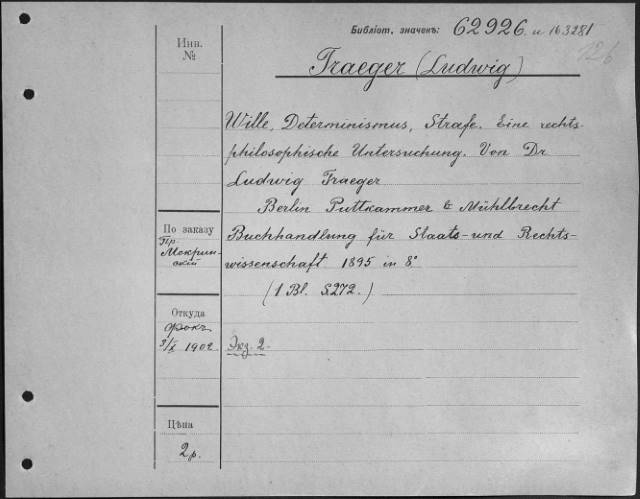 Библіот. значекъ: 62926. и 163281
126
Инв.
№
Traeger (Ludwig)
Wille, Determinismus, Strafe. Eine rechts-
philosophische Untersuchung. Von Dr
Ludwig Traeger
Berlin Puttkammer & Mühlbrecht
Buchhandlung für Staats- und Rechts-
wissenschaft 1895 in 8°
(1 Bl. S.272.)
По заказу
Пр.
Мокрин-
ский
Откуда
Фокъ
3/X 1902
Экз. 2
Цѣна
2 р.